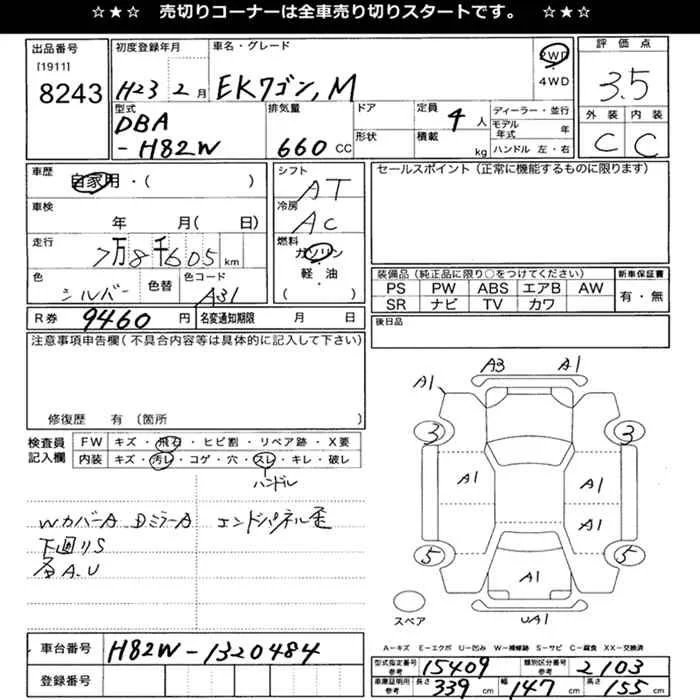 ☆★☆ 売切りコーナーは全車売り切りスタートです。 ☆★☆
出品番号
[1911]
8243
初度登録年月
H23 2月
車名・グレード
EKワゴン, M
2WD
4WD
評価点
3.5
外装 内装
C C
型式
DBA
-H82W
排気量
660 CC
ドア
形状
定員
4人
積載
kg
ディーラー・並行
モデル年式 年
ハンドル 左・右
車歴
自家用・( )
車検
年 月( 日)
走行
7万8千605 km
色
シルバー
色替
色コード
A31
シフト
AT
冷房
AC
燃料
ガソリン
・
軽・油
( )
セールスポイント(正常に機能するものに限ります)
装備品(純正品に限り○をつけてください)
PS PW ABS エアB AW
SR ナビ TV カワ
新車保証書
有・無
R券 9460 円
名変通知期限 月 日
後日品
注意事項申告欄(不具合内容等は具体的に記入して下さい)
修復歴 有 (箇所
検査員
記入欄
FW キズ・飛石・ヒビ割・リペア跡・X要
内装 キズ・汚レ・コゲ・穴・スレ・キレ・破レ
ハンドル
WカバーA DミラーA エンドパネル歪
下廻りS
各A.U
A3 A1
A1
3 3
A1 A1
A1
5 5
A1
UA1
スペア
車台番号 H82W-1320484
登録番号
A-キズ E-エクボ U-凹み W-補修跡 S-サビ C-腐食 XX-交換済
型式指定番号 参考 15409
類別区分番号 参考 2103
車庫証明用 参考 長さ 339 cm 幅 147 cm 高さ 155 cm